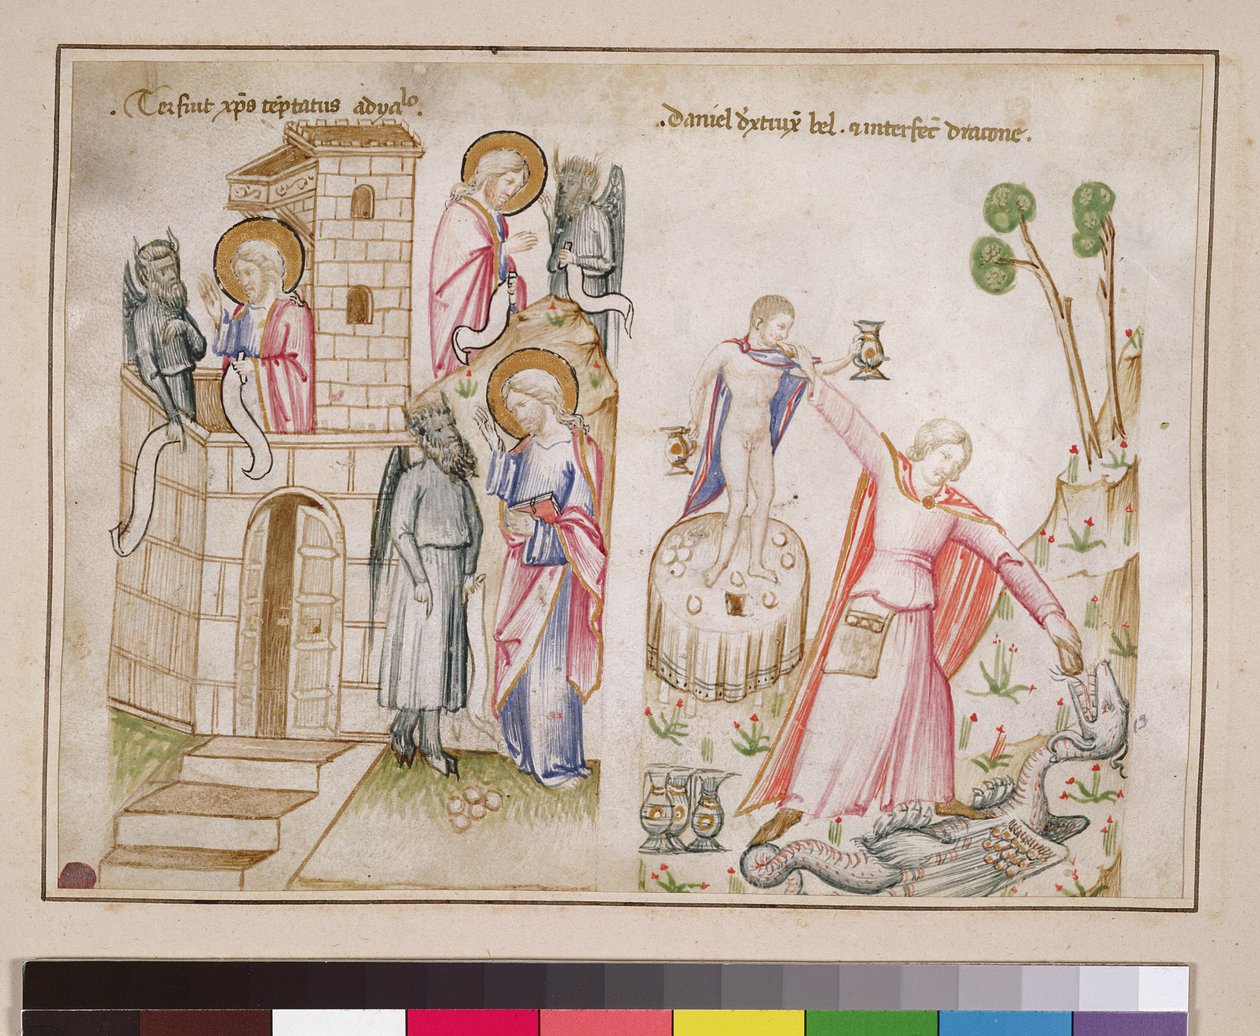 . Ter fiut xp̄s tēptatus adyalo .
. Daniel d̄xtiux̄ bel . ⁊ interfec̄ dracone .
13